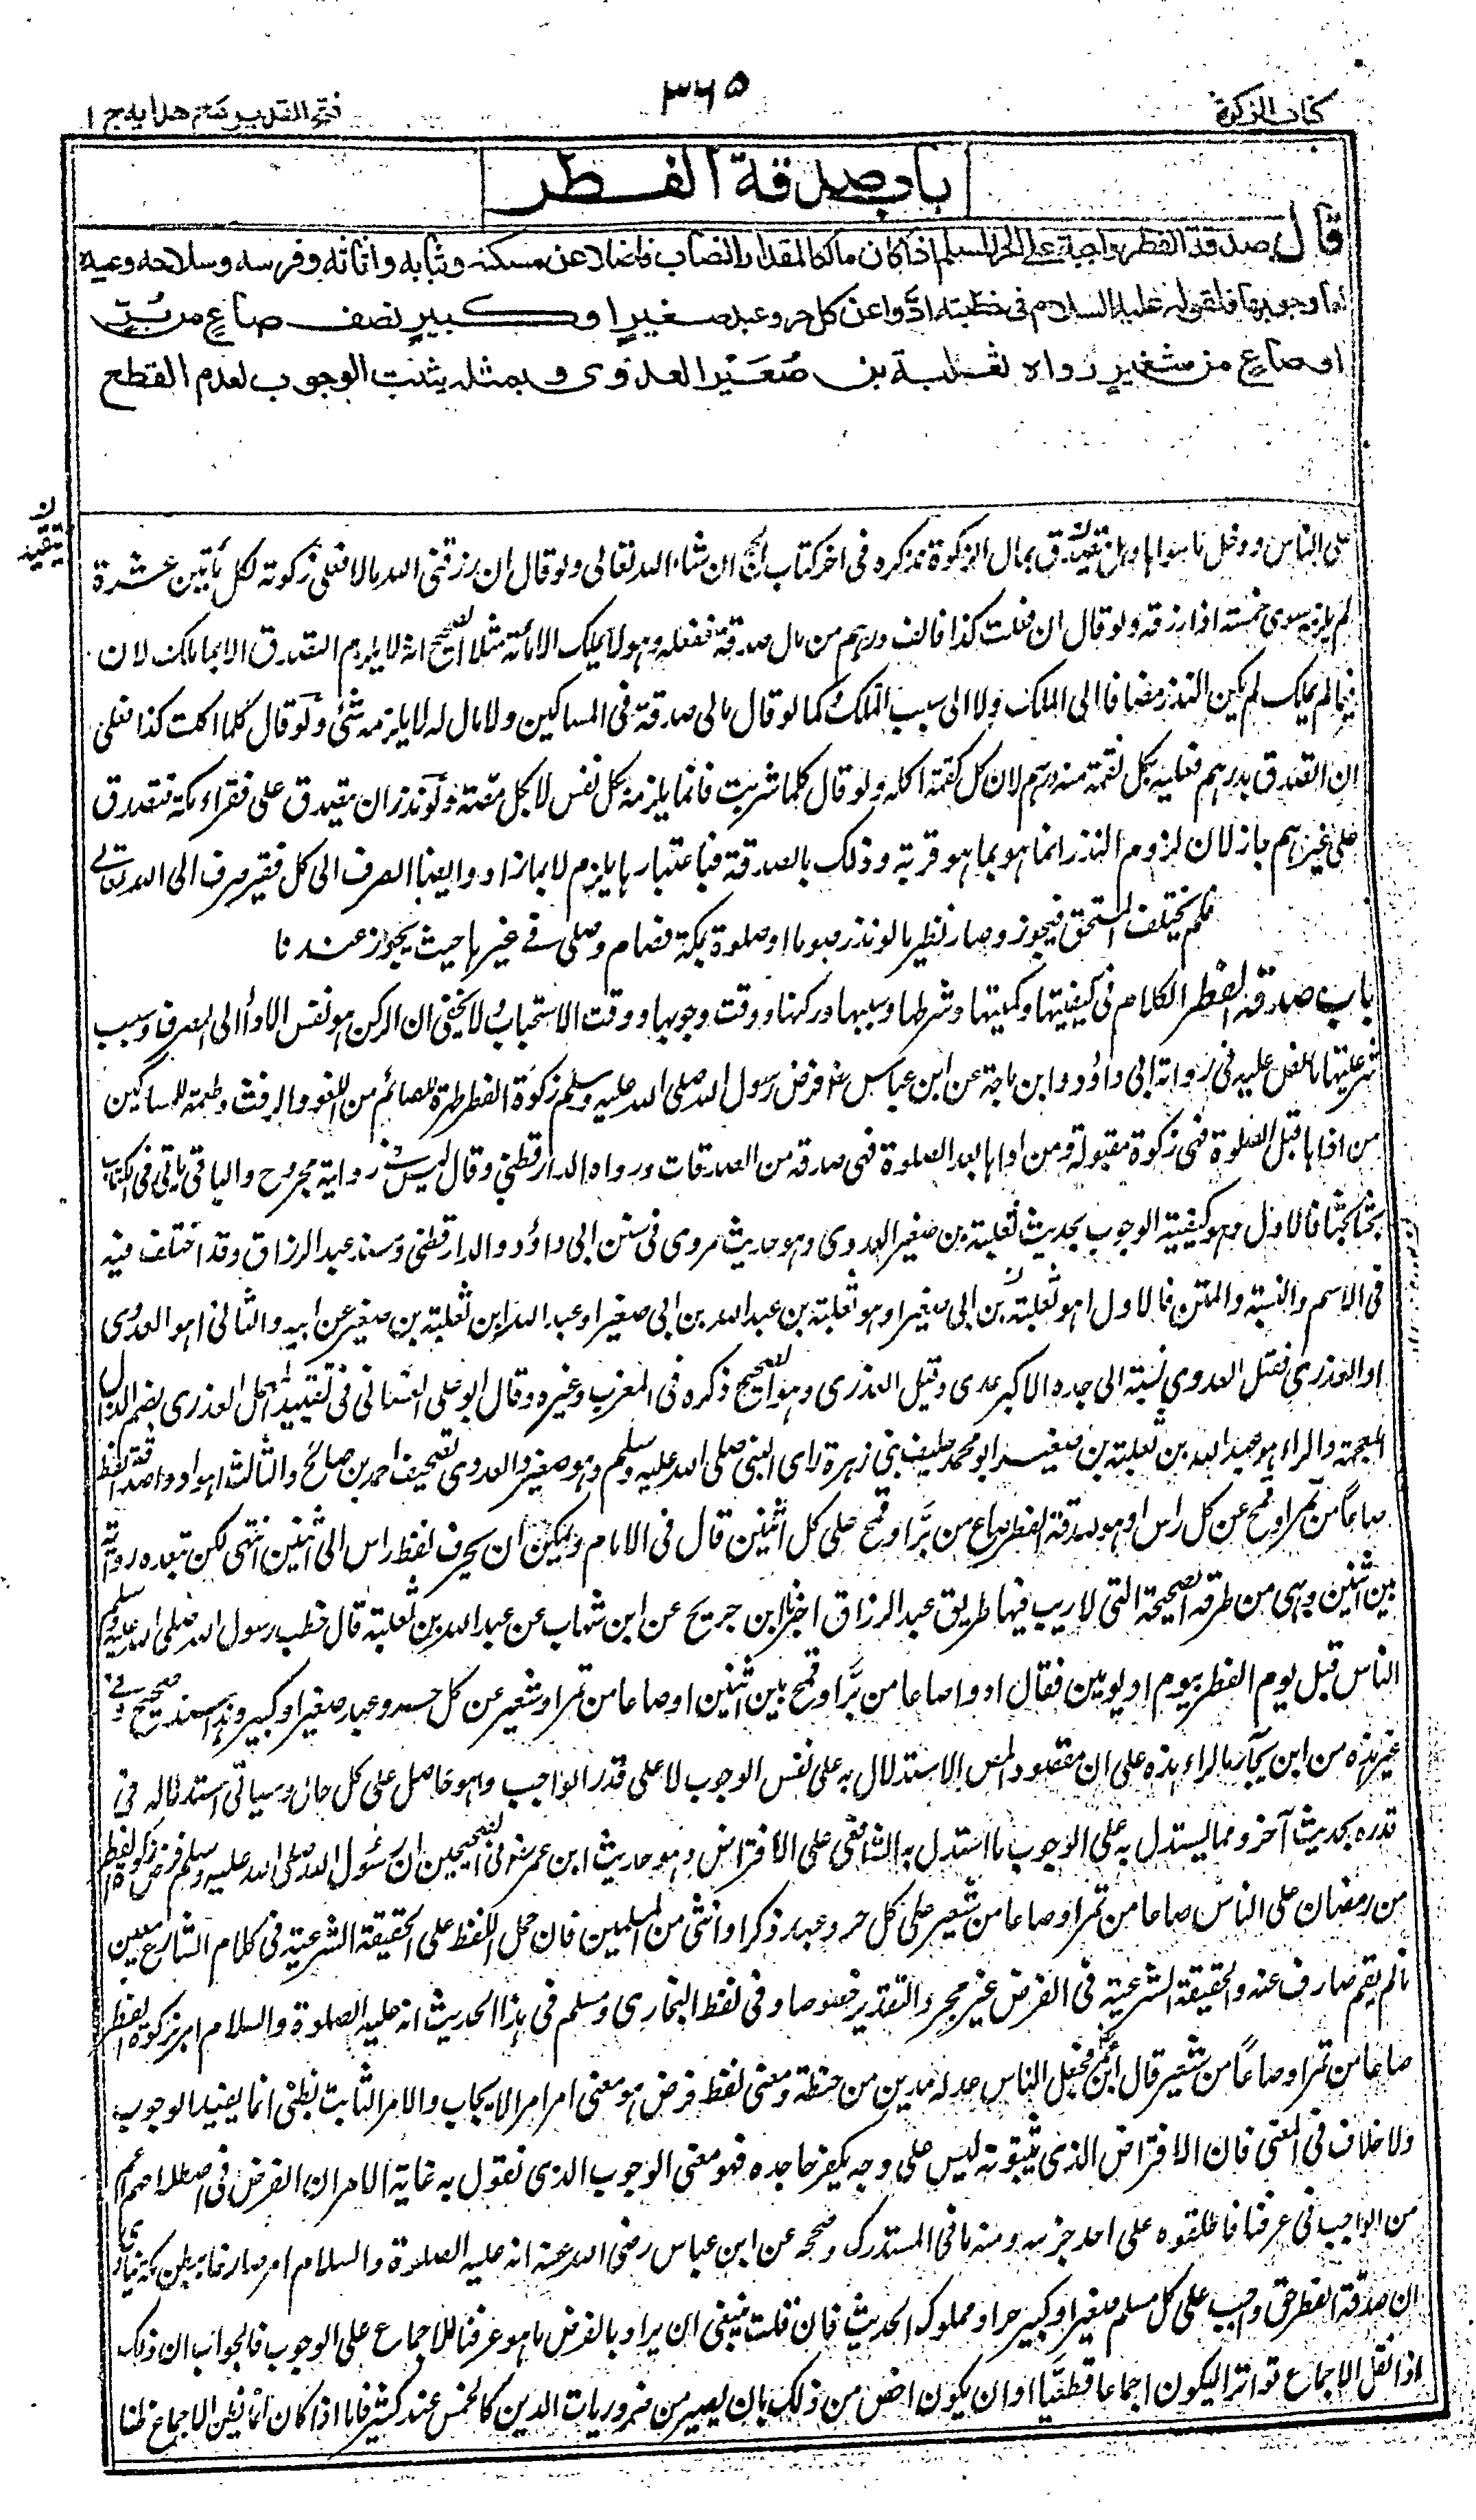 كتاب الزكوة
٣٦٥
فتح القدير مع هدايه ج ١
باب صدقة الفطر
قال صدقة الفطر واجبة على الحر المسلم اذا كان مالكا لمقدار النصاب فاضلا عن مسكنه وثيابه واثاثه وفرسه وسلاحه وعبيده
اما وجوبها فلقوله عليه السلام في خطبته ادّوا عن كل حر وعبد صغيرٍ او كبيرٍ نصف صاعٍ من بُرّ
او صاعٍ من شعيرٍ رواه ثعلبة بن صُعَيْر العدوى وبمثله يثبت الوجوب لعدم القطع
على الناس ودخل ما سواها وهل تقييد بمال الزكوة نذكره فى اخر كتاب الحج ان شاء الله تعالى ولو قال ان رزقنى الله مالا فعلى زكوته لكل مأتين عشرة
لم يلزمه سوى خمسة اذا رزقه ولو قال ان فعلت كذا فالف درهم من مال صدقة ففعله وهو لا يملك الا مائة مثلا الصحيح انه لا يلزم التصدق الا بما ملك لان
فيما لم يملك لم يكن النذر مضافا الى الملك ولا الى سبب الملك كما لو قال مالى صدقة فى المساكين ولا مال له لا يلزمه شئ ولو قال كلما اكلت كذا فعلى
ان اتصدق بدرهم فعليه بكل لقمة منه درهم لان كل لقمة اكله ولو قال كلما شربت فانما يلزمه بكل نفس لا بكل مصة ولو نذر ان يتصدق على فقراء مكة فتصدق
على غيرهم جاز لان لزوم النذر انما هو بما هو قربة وذلك بالصدقة فباعتبارها يلزم لا بما زاد وايضا الصرف الى كل فقير صرف الى الله تعالى
فلم يختلف المستحق فيجوز وصار نظير ما لو نذر صوما او صلوة بمكة فصام وصلى فى غيرها حيث يجوز عندنا
باب صدقة الفطر الكلام فى كيفيتها وكميتها وشرطها وسببها وركنها ووقت وجوبها ووقت الاستحباب ولا يخفى ان الركن هو نفس الاداء الى المصرف وسبب
شرعيتها ما نص عليه فى رواية ابى داؤد وابن ماجة عن ابن عباس رض فرض رسول الله صلى الله عليه وسلم زكوة الفطر طهرة للصائم من اللغو والرفث وطعمة للمساكين
من اداها قبل الصلوة فهى زكوة مقبولة ومن اداها بعد الصلوة فهى صدقه من الصدقات ورواه الدارقطنى وقال ليس فى رواية مجروح والباقى ياتى فى الكتاب
بحثا بحثا فالاول وهو كيفية الوجوب بحديث ثعلبة بن صغير العدوى وهو حديث مروى فى سنن ابى داؤد والدارقطنى ومسند عبد الرزاق وقد اختلف فيه
فى الاسم والنسبة والمتن فالاول اهو ثعلبة بن ابى صغير او هو ثعلبة بن عبد الله بن ابى صغير او عبد الله ابن ثعلبة بن صغير عن ابيه والثانى اهو العدوى
او العذرى فقيل العدوى نسبة الى جده الاكبر عدى وقيل العذرى وهو الصحيح ذكره فى المغرب وغيره وقال ابو على الغسانى فى تقييد المهمل العذرى بضم الذال
المعجمة والراء هو عبد الله بن ثعلبة بن صغير ابو محمد حليف بنى زهرة راى النبى صلى الله عليه وسلم وهو صغير والعدوى تصحيف احمد بن صالح والثالث اهو ادوا صدقة الفطر
صاعًا من تمر او قمح عن كل راس او هو صدقة الفطر صاع من بُرّ او قمح على كل اثنين قال فى الامام ويمكن ان يحرف لفظ راس الى اثنين انتهى لكن تبعده رواية
بين اثنين وهى من طرقه الصحيحة التى لا ريب فيها طريق عبد الرزاق اخبرنا ابن جريج عن ابن شهاب عن عبد الله بن ثعلبة قال خطب رسول الله صلى الله عليه وسلم
الناس قبل يوم الفطر بيوم او يومين فقال ادوا صاعا من بُرّ او قمح بين اثنين او صاعا من تمر او شعير عن كل حر وعبد صغير او كبير وهذا سند صحيح وفى
غير هذه من اين يجاء بالراء هذه على ان مقصود المص الاستدلال به على نفس الوجوب لا على قدر الواجب وهو حاصل على كل حال وسياتى استدلاله فى
قدره بحديث آخر ومما يستدل به على الوجوب ما استدل به الشافعى على الافتراض وهو حديث ابن عمر رض فى الصحيحين ان رسول الله صلى الله عليه وسلم فرض زكوة الفطر
من رمضان على الناس صاعا من تمر او صاعا من شعير على كل حر وعبد ذكر او انثى من المسلمين فان حمل اللفظ على الحقيقة الشرعية فى كلام الشارع متعين
ما لم يقم صارف عنه والحقيقة الشرعية فى الفرض غير مجرد التقدير خصوصا وفى لفظ البخارى ومسلم فى هذا الحديث انه عليه الصلوة والسلام امر بزكوة الفطر
صاعا من تمر او صاعًا من شعير قال ابن عمر فجعل الناس عدله مدين من حنطة ومعنى لفظ فرض هو معنى امر امر الايجاب والامر الثابت بظنى انما يفيد الوجوب
ولا خلاف فى المعنى فان الافتراض الذى يثبتونه ليس على وجه يكفر جاحده فهو معنى الوجوب الذى نقول به غاية الامر ان الفرض فى اصطلاحهم اعم
من الواجب فى عرفنا فاطلقوه على احد جزئيه ومنه ما فى المستدرك وصححه عن ابن عباس رضى الله عنه انه عليه الصلوة والسلام امر صارخا ببطن مكة ينادى
ان صدقة الفطر حق واجب على كل مسلم صغير او كبير حر او مملوك الحديث فان قلت ينبغى ان يراد بالفرض ما هو عرفنا للاجماع على الوجوب فالجواب ان ذلك
اذا نقل الاجماع تواترا ليكون اجماعا قطعيًا او ان يكون اخص من ذلك بان يصير من ضروريات الدين كالخمس عند كثير فاما اذا كان انما يظن الاجماع ظنا